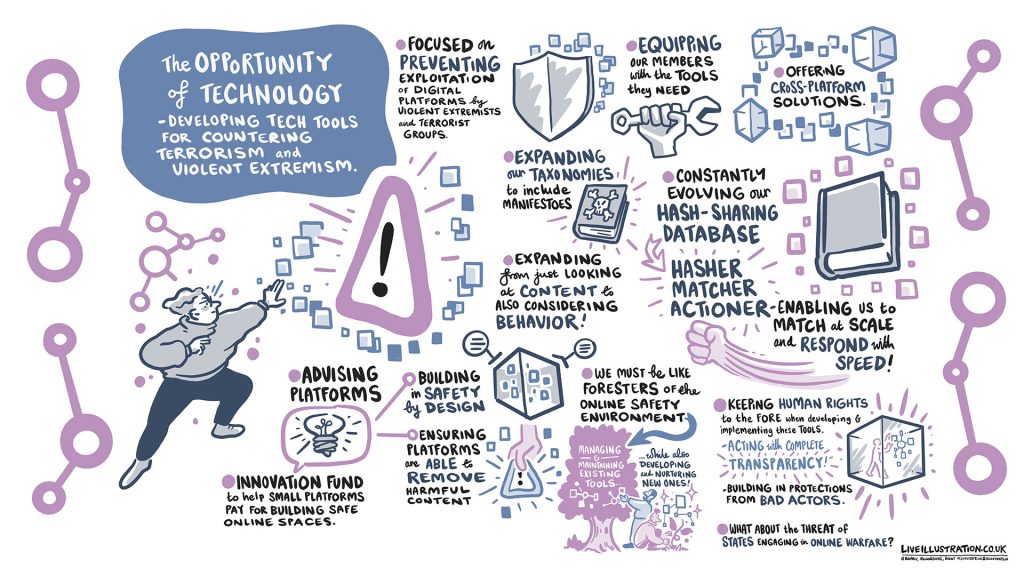 The OPPORTUNITY
of TECHNOLOGY
-DEVELOPING TECH TOOLS
FOR COUNTERING
TERRORISM and
VIOLENT EXTREMISM.
FOCUSED on
PREVENTING
EXPLOITATION
OF DIGITAL
PLATFORMS by
VIOLENT EXTREMISTS
and TERRORIST
GROUPS.
EQUIPPING
OUR MEMBERS
with the TOOLS
they NEED
OFFERING
CROSS-PLATFORM
SOLUTIONS.
EXPANDING
our TAXONOMIES
to include
MANIFESTOES
CONSTANTLY
EVOLVING our
HASH-SHARING
DATABASE
HASHER
MATCHER
ACTIONER-
ENABLING US to
MATCH at SCALE
and RESPOND with
SPEED!
EXPANDING
from just LOOKING
at CONTENT to
ALSO CONSIDERING
BEHAVIOR!
!
ADVISING
PLATFORMS
BUILDING
in SAFETY
by DESIGN
ENSURING
PLATFORMS
are ABLE to
REMOVE
HARMFUL
CONTENT
!
INNOVATION FUND
to help SMALL PLATFORMS
PAY FOR BUILDING SAFE
ONLINE SPACES.
WE MUST be LIKE
FORESTERS of the
ONLINE SAFETY
ENVIRONMENT
MANAGING
&
MAINTAINING
EXISTING
TOOLS...
...while also
DEVELOPING
and NURTURING
NEW ONES!
KEEPING HUMAN RIGHTS
to the FORE when developing &
implementing these TOOLS.
-ACTING with COMPLETE
TRANSPARENCY!
-BUILDING IN PROTECTIONS
FROM BAD ACTORS.
WHAT ABOUT the THREAT of
STATES ENGAGING in ONLINE WARFARE?
LIVEILLUSTRATION.CO.UK